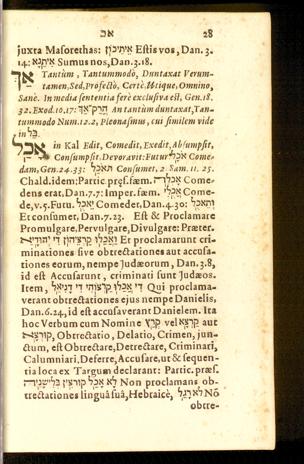 אכ 28
juxta Masorethas: איתיכון Estis vos, Dan. 3.
14: איתנא Sumus nos, Dan. 3. 18.
אך Tantùm, Tantummodò, Duntaxat Verum-
tamen, Sed, Profectò, Certè, Utique, Omnino,
Sanè. In media sententia ferè exclusiva est, Gen. 18.
32. Exod. 10. 17: הרק אך An tantùm duntaxat, Tan-
tummodo Num. 12. 2, Pleonasmus, cui similem vide
in בל
אכל in Kal Edit, Comedit, Exedit, Absumpsit,
Consumpsit. Devoravit: Futur. Come-
dam, Gen. 24. 33: Consumet, 2. Sam. 11. 25.
Chald. idem: Partic. præs. fæm. אכלה Come-
dens erat, Dan. 7. 7: Imper. fæm. אכלי Come-
de, v. 5. Fut. יאכל Comedet, Dan. 4. 30: ותאכל
Et consumet, Dan. 7. 23. Est & Proclamare
Promulgare, Pervulgare, Divulgare: Præter.
ואכלו קרציהון די יהודיא Et proclamarunt cri-
minationes sive obtrectationes aut accusa-
tiones eorum, nempe Judæorum, Dan. 3. 8,
id est Accusarunt, criminati sunt Judæos.
Item, די אכלו קרצוהי די דניאל Qui proclama-
verant obtrectationes ejus nempe Danielis,
Dan. 6. 24, id est accusaverant Danielem. Ita
hoc Verbum cum Nomine קרץ vel קורצא aut
קורצא, Obtrectatio, Delatio, Crimen, jun-
ctum, est Obtrectare, Detrectare, Criminari,
Calumniari, Deferre, Accusare, ut & sequen-
tia loca ex Targum declarant: Partic. præs.
לא אכל קורצין בלישניה Non proclamans ob-
trectationes linguâ suâ, Hebraicè, לא רגל Nō
obtre-